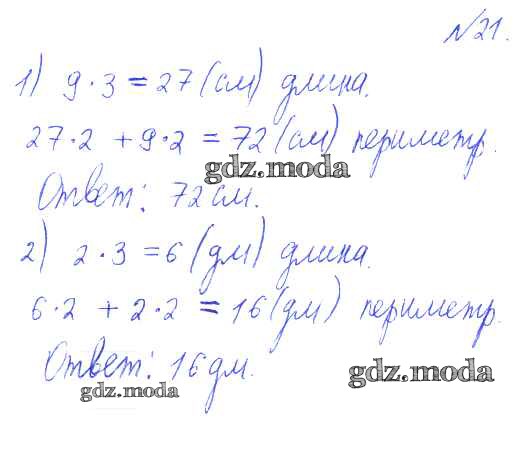 №21.
1) 9·3 = 27 (см) длина.
27·2 + 9·2 = 72 (см) периметр.
gdz.moda
Ответ: 72 см.
2) 2·3 = 6 (дм) длина.
6·2 + 2·2 = 16 (дм) периметр.
Ответ: 16 дм.
gdz.moda
gdz.moda